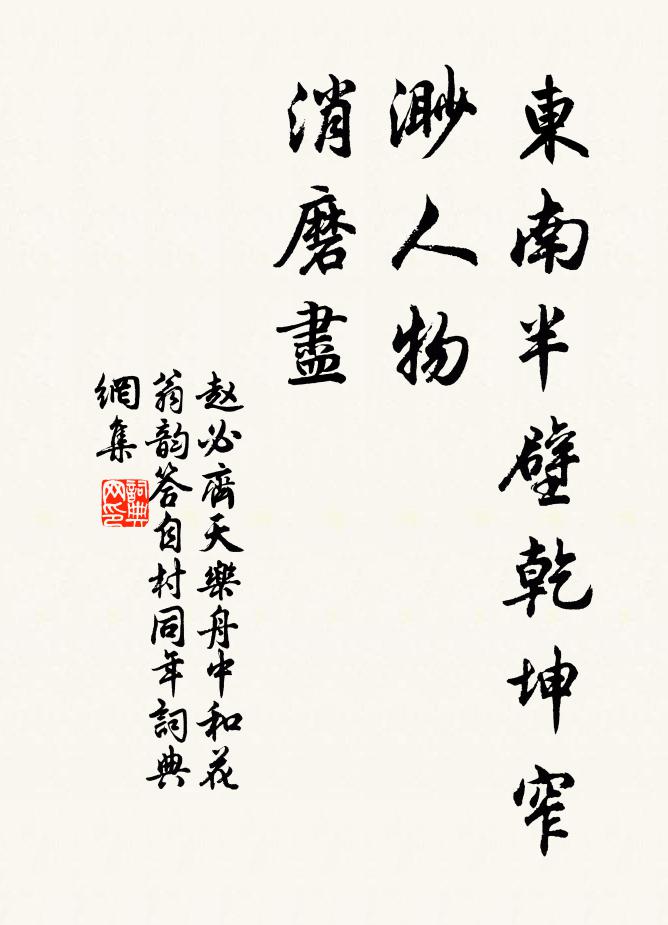 東南半壁乾坤窄
渺人物
消磨盡
赵必齊天樂舟中和花
翁韵答自村同年詞典
網集
詞典
网印